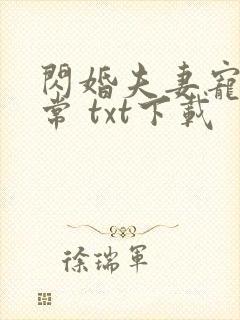 閃婚夫妻寵
常 txt下載
徐瑞軍